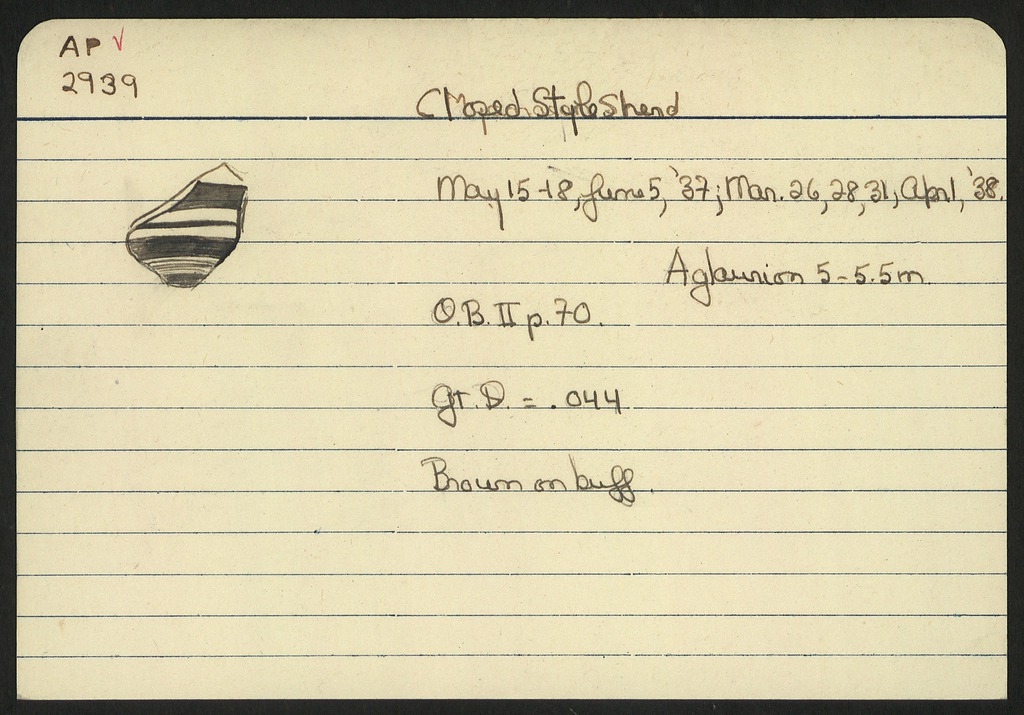 AP ✓
2939
Closed Style Sherd
May 15-18, June 5, '37; Mar. 26, 28, 31, April, '38.
Aglaurion 5-5.5m.
O.B. II p. 70.
Gr. D. = .044
Brown on buff.